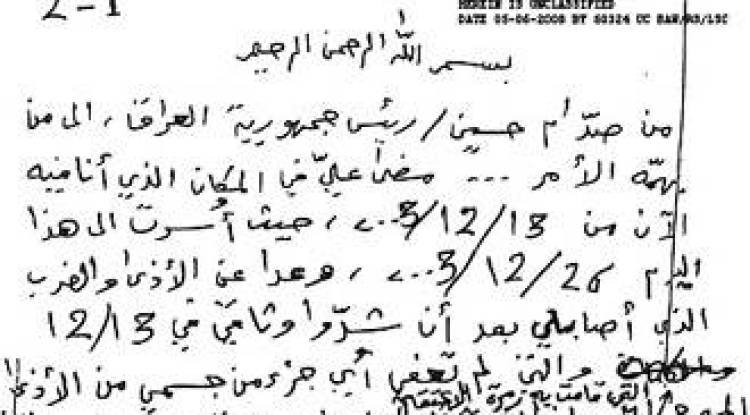 2-1
HEREIN IS UNCLASSIFIED
DATE 05-06-2008 BY 60324 UC BAW/RS/LSC
بسم الله الرحمن الرحيم
من صدّام حسين/رئيس جمهورية العراق، الى من
يهمّه الأمر ... مضى عليّ في المكان الذي أنا فيه
الآن من 13/12/2003، حيث أُسرت الى هذا
اليوم 26/12/2003، وعدا عن الأذى والضرب
الذي أصابني بعد أن شدّوا وثاقي في 12/13
والتي لم تعفي أي جزء من جسمي من الأذى
التي قامت به زمرة الاعتقال